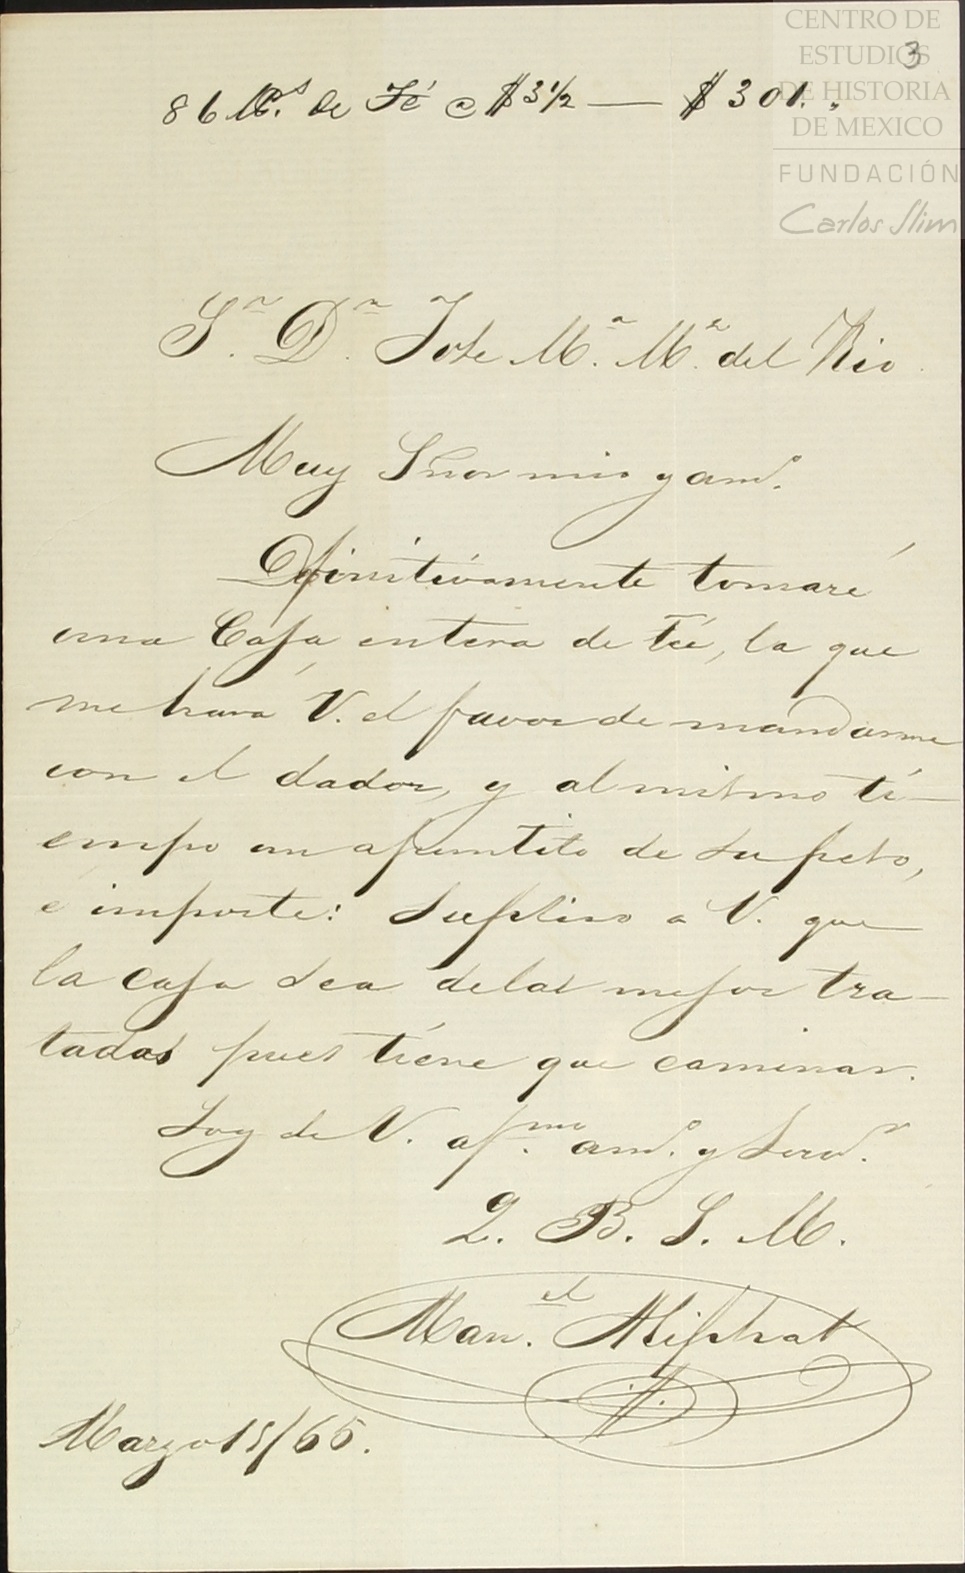 CENTRO DE
ESTUDIOS
DE HISTORIA
DE MEXICO
FUNDACIÓN
Carlos Slim
3
86 lbs. de Té @ $3½ — $301. "
Sr. Dn. Jose Ma. Ma. del Rio
Muy Señor mio y amo.
Definitivamente tomaré
una Caja entera de Té, la que
me hará V. el favor de mandarme
con el dador, y al mismo ti-
empo un apuntito de su peso,
é importe: Suplico a V. que
la caja sea de las mejor tra-
tadas pues tiene que caminar.
Soy de V. afmo. amo. y servr.
Q. B. S. M.
Manel.
Marzo 15/65.